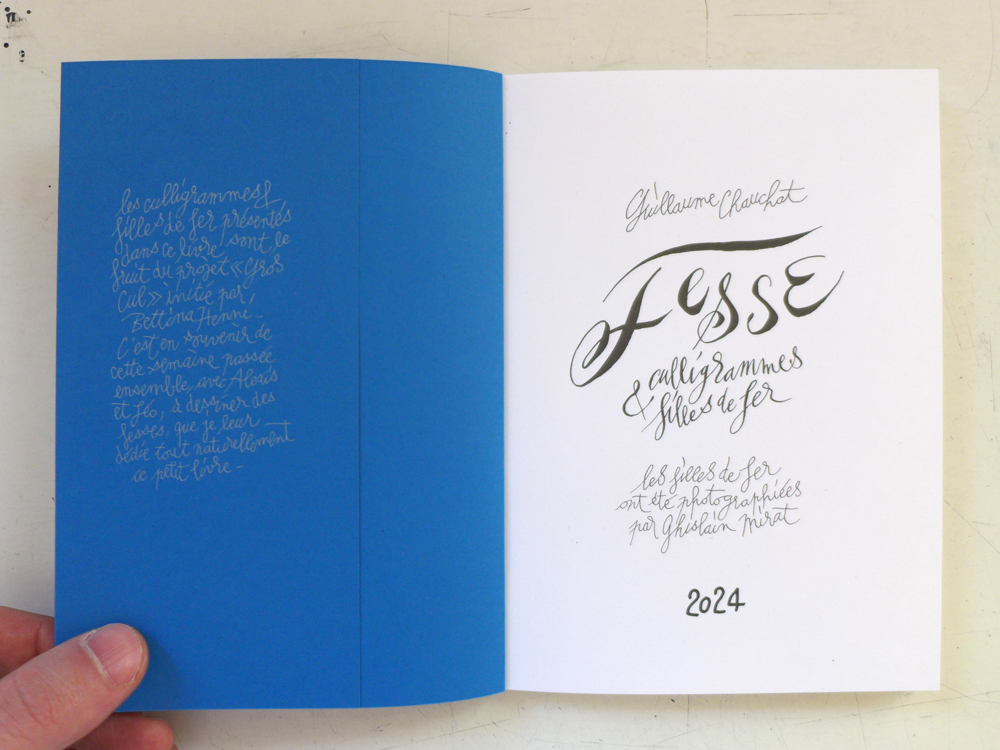 les calligrammes &
filles de fer présentés
dans ce livre sont le
fruit du projet «Gros
Cul» initié par
Bettina Henni -
C'est en souvenir de
cette semaine passée
ensemble, avec Alexis
et Jéo, à dessiner des
fesses, que je leur
dédie tout naturellement
ce petit livre -
Guillaume Chauchat
FESSE
calligrammes
& filles de fer
les filles de fer
ont été photographiées
par Ghislain Mirat
2024